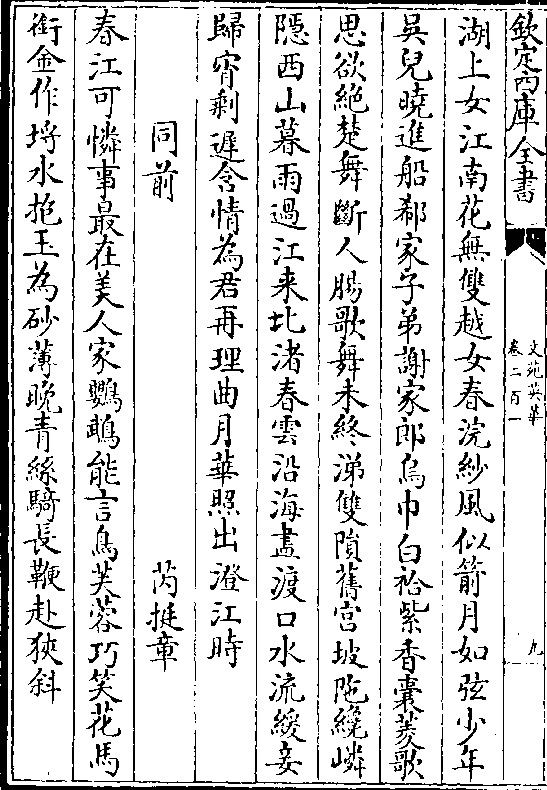 欽定四庫全書
文苑英華
卷二百一
九
湖上女江南花無雙越女春浣紗風似箭月如弦少年
吳兒曉進船郗家子弟謝家郎烏巾白袷紫香囊菱歌
思欲絶楚舞斷人腸歌舞未終涕雙隕舊宫坡陁纔嶙
隠西山暮雨過江来北渚春雲沿海盡渡口水流緩妾
歸宵剩遲含情為君再理曲月華照出澄江時
同前
芮挺章
春江可憐事最在美人家鸚鵡能言鳥芙蓉巧笑花馬
銜金作埒水抱玉為砂薄晚青絲騎長鞭赴狹斜